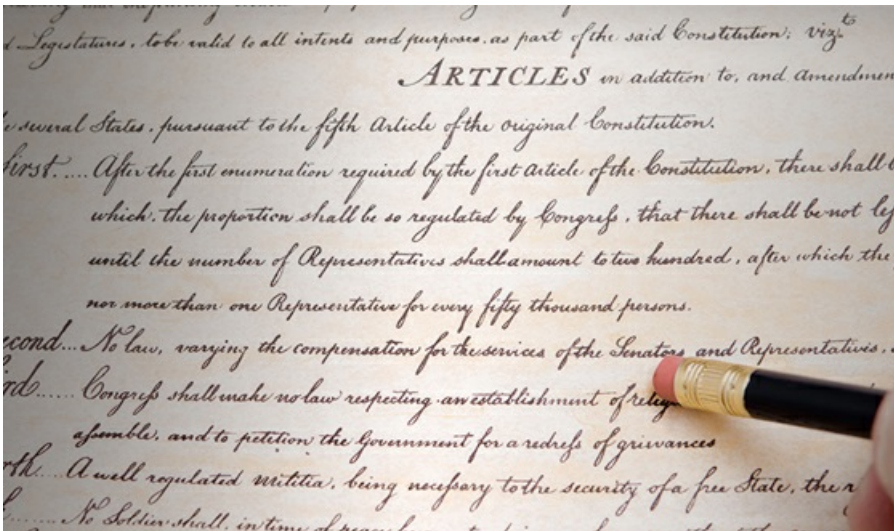 d Legislatures, to be valid to all intents and purposes, as part of the said Constitution; vizt
ARTICLES in addition to, and amendmen
several States, pursuant to the fifth Article of the original Constitution.
first..... After the first enumeration required by the first Article of the Constitution, there shall b
which, the proportion shall be so regulated by Congress, that there shall be not les
until the number of Representatives shall amount to two hundred, after which the
nor more than one Representative for every fifty thousand persons.
econd... No law, varying the compensation for the services of the Senators and Representatives,
ird...... Congress shall make no law respecting an establishment of relig
assemble, and to petition the Government for a redress of grievances
rth.... A well regulated militia, being necessary to the security of a free State, the r
No Soldier shall, in time of peace